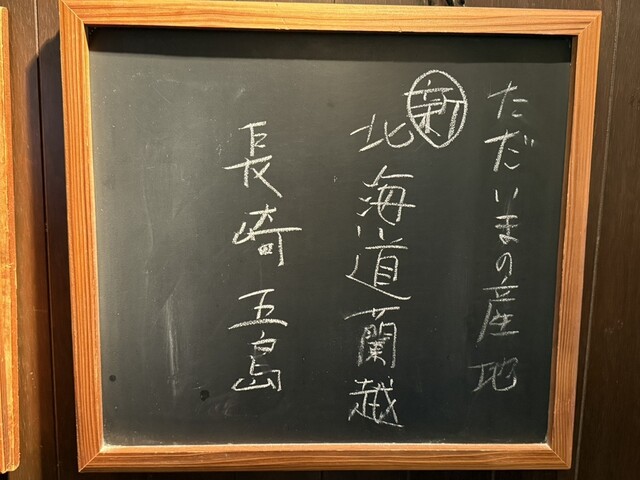 ただいまの産地
新
北海道蘭越
長崎五島